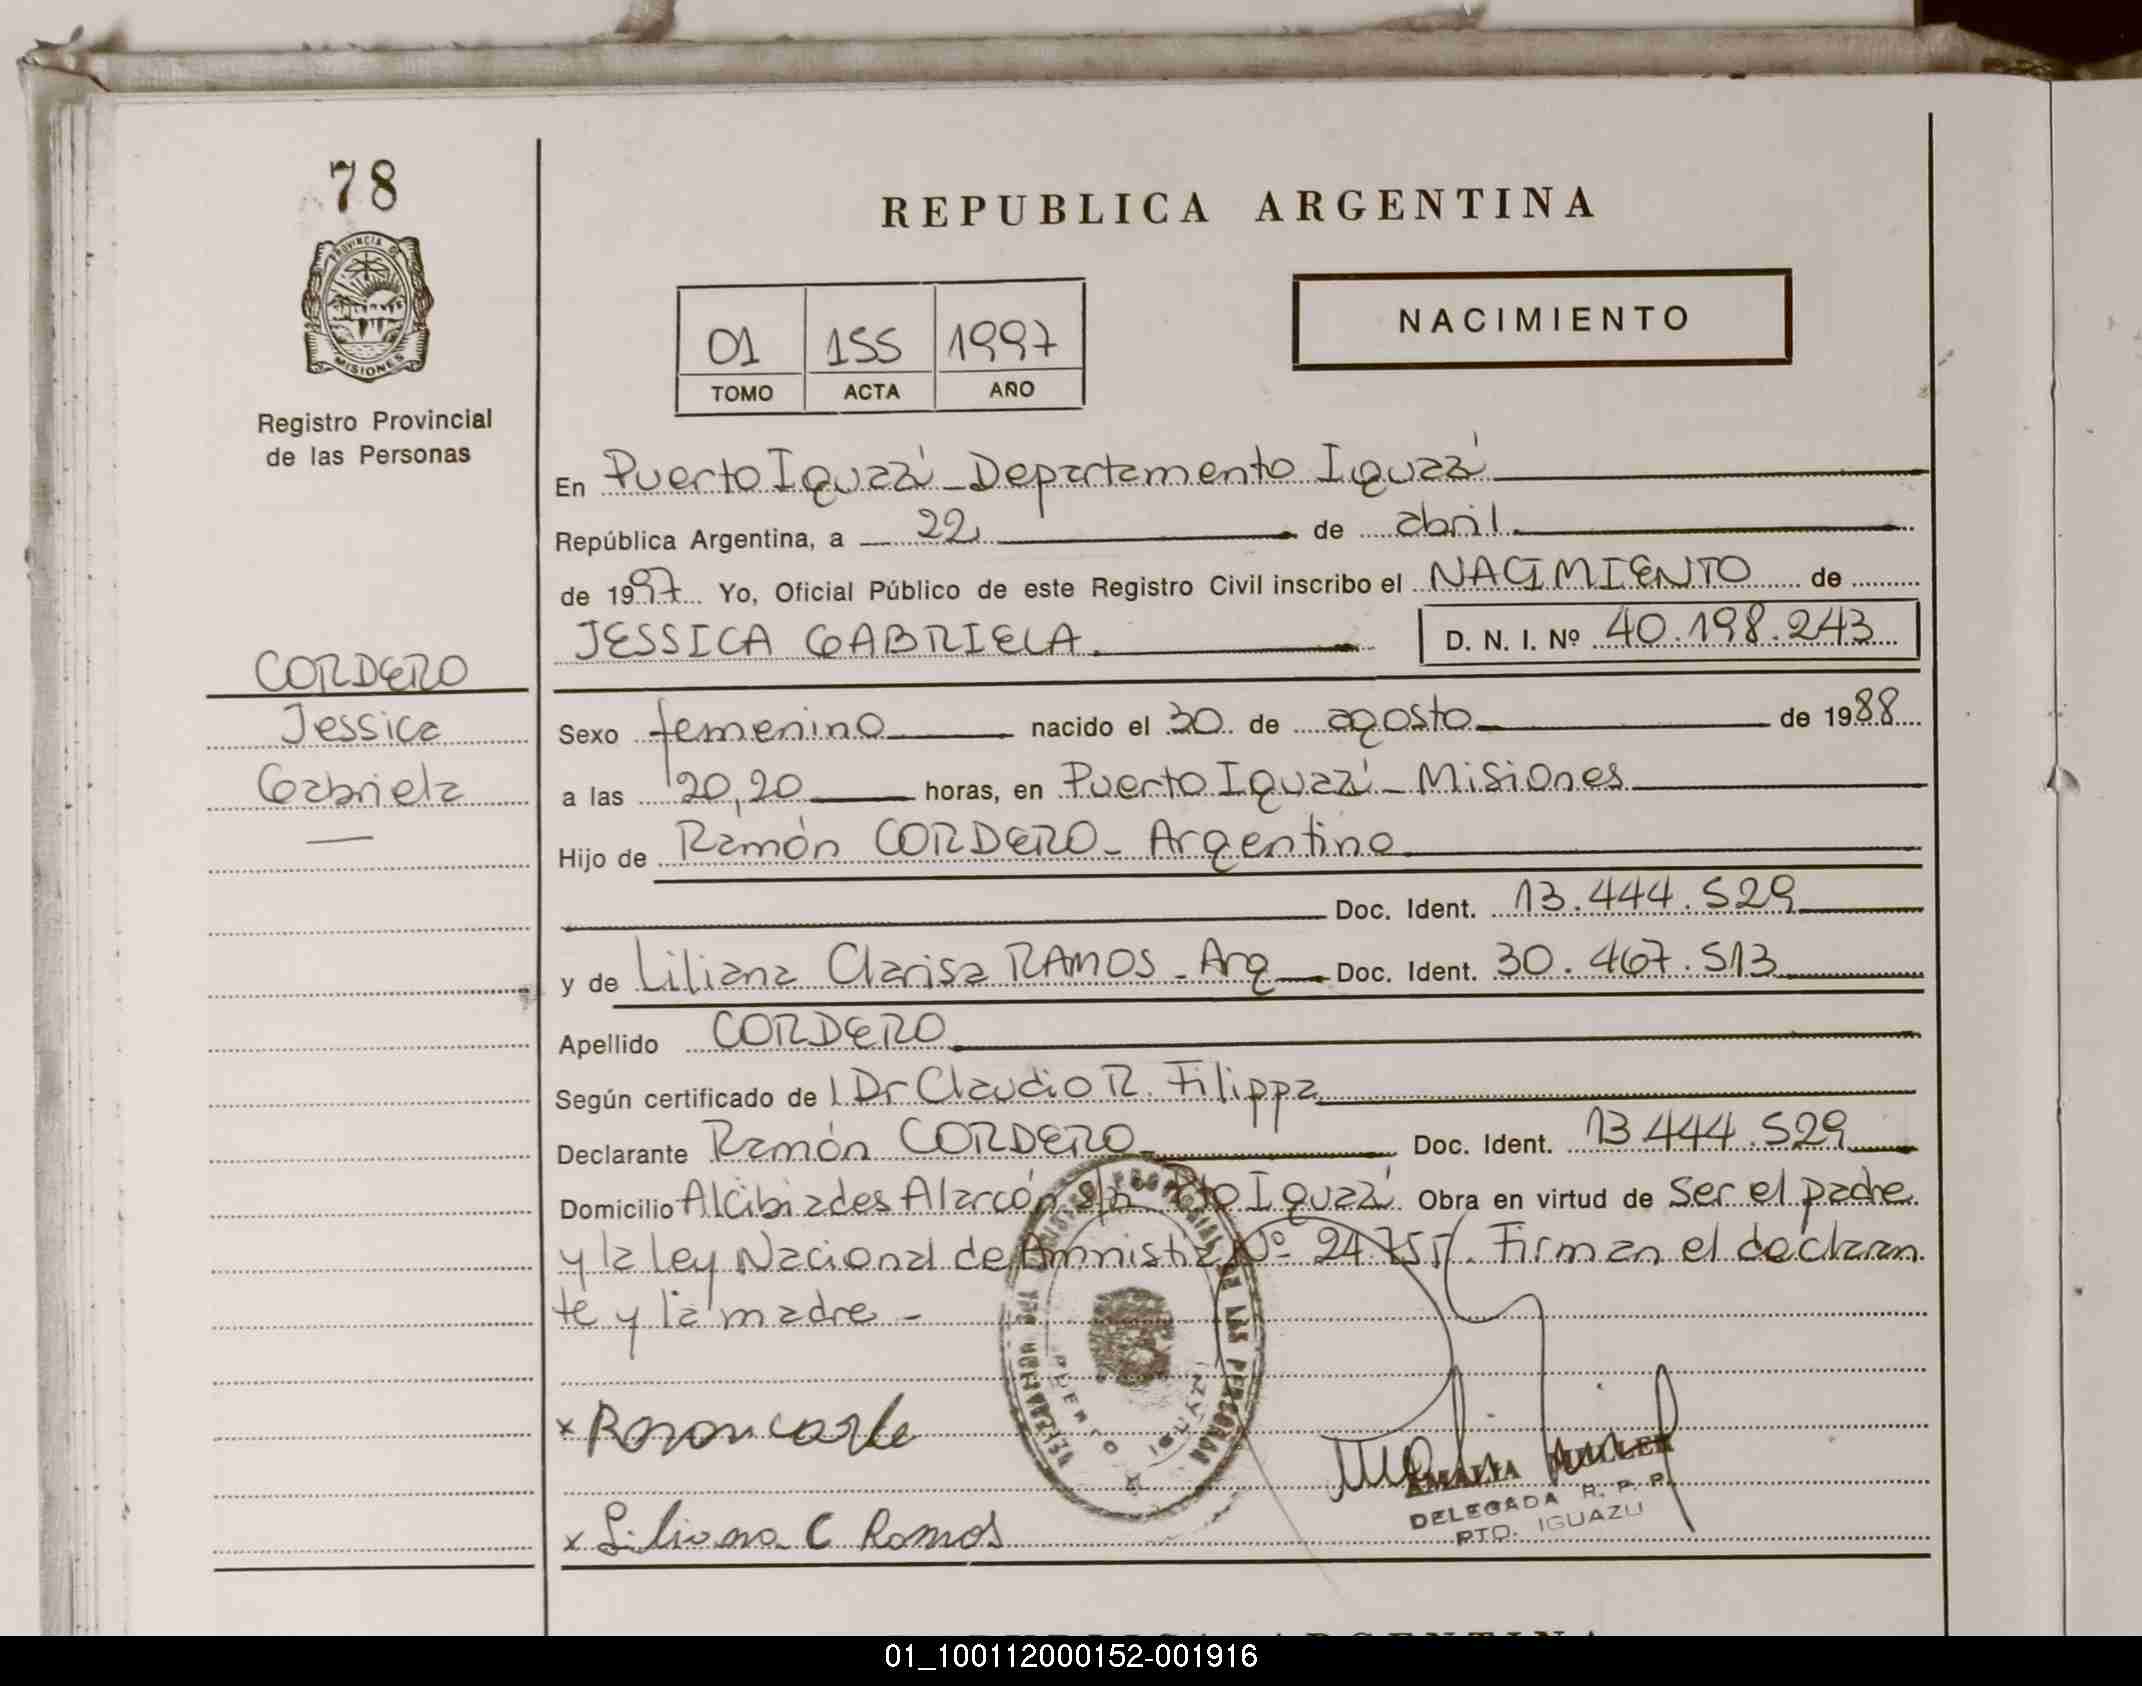 78
PROVINCIA DE
MISIONES
Registro Provincial
de las Personas
REPUBLICA ARGENTINA
01 155 1997
TOMO ACTA AÑO
NACIMIENTO
En Puerto Iguazú - Departamento Iguazú
República Argentina, a 22 de abril
de 1997 Yo, Oficial Público de este Registro Civil inscribo el NACIMIENTO de
JESSICA GABRIELA D. N. I. Nº 40.198.243
CORDERO
Jessica
Gabriela
Sexo femenino nacido el 30 de agosto de 1988
a las 20,20 horas, en Puerto Iguazú - Misiones
Hijo de Ramón CORDERO - Argentino
Doc. Ident. 13.444.529
y de Liliana Clarisa RAMOS - Arg Doc. Ident. 30.467.513
Apellido CORDERO
Según certificado de l Dr Claudio R. Filippa
Declarante Ramón CORDERO Doc. Ident. 13.444.529
Domicilio Alcibiades Alarcón s/n Pto Iguazú Obra en virtud de ser el padre
y la ley Nacional de Amnistía Nº 24.755. Firman el declaran
te y la madre -
x
x Liliana C Ramos
AMALIA MULLER
DELEGADA R. P. P.
PTO. IGUAZU
01_100112000152-001916